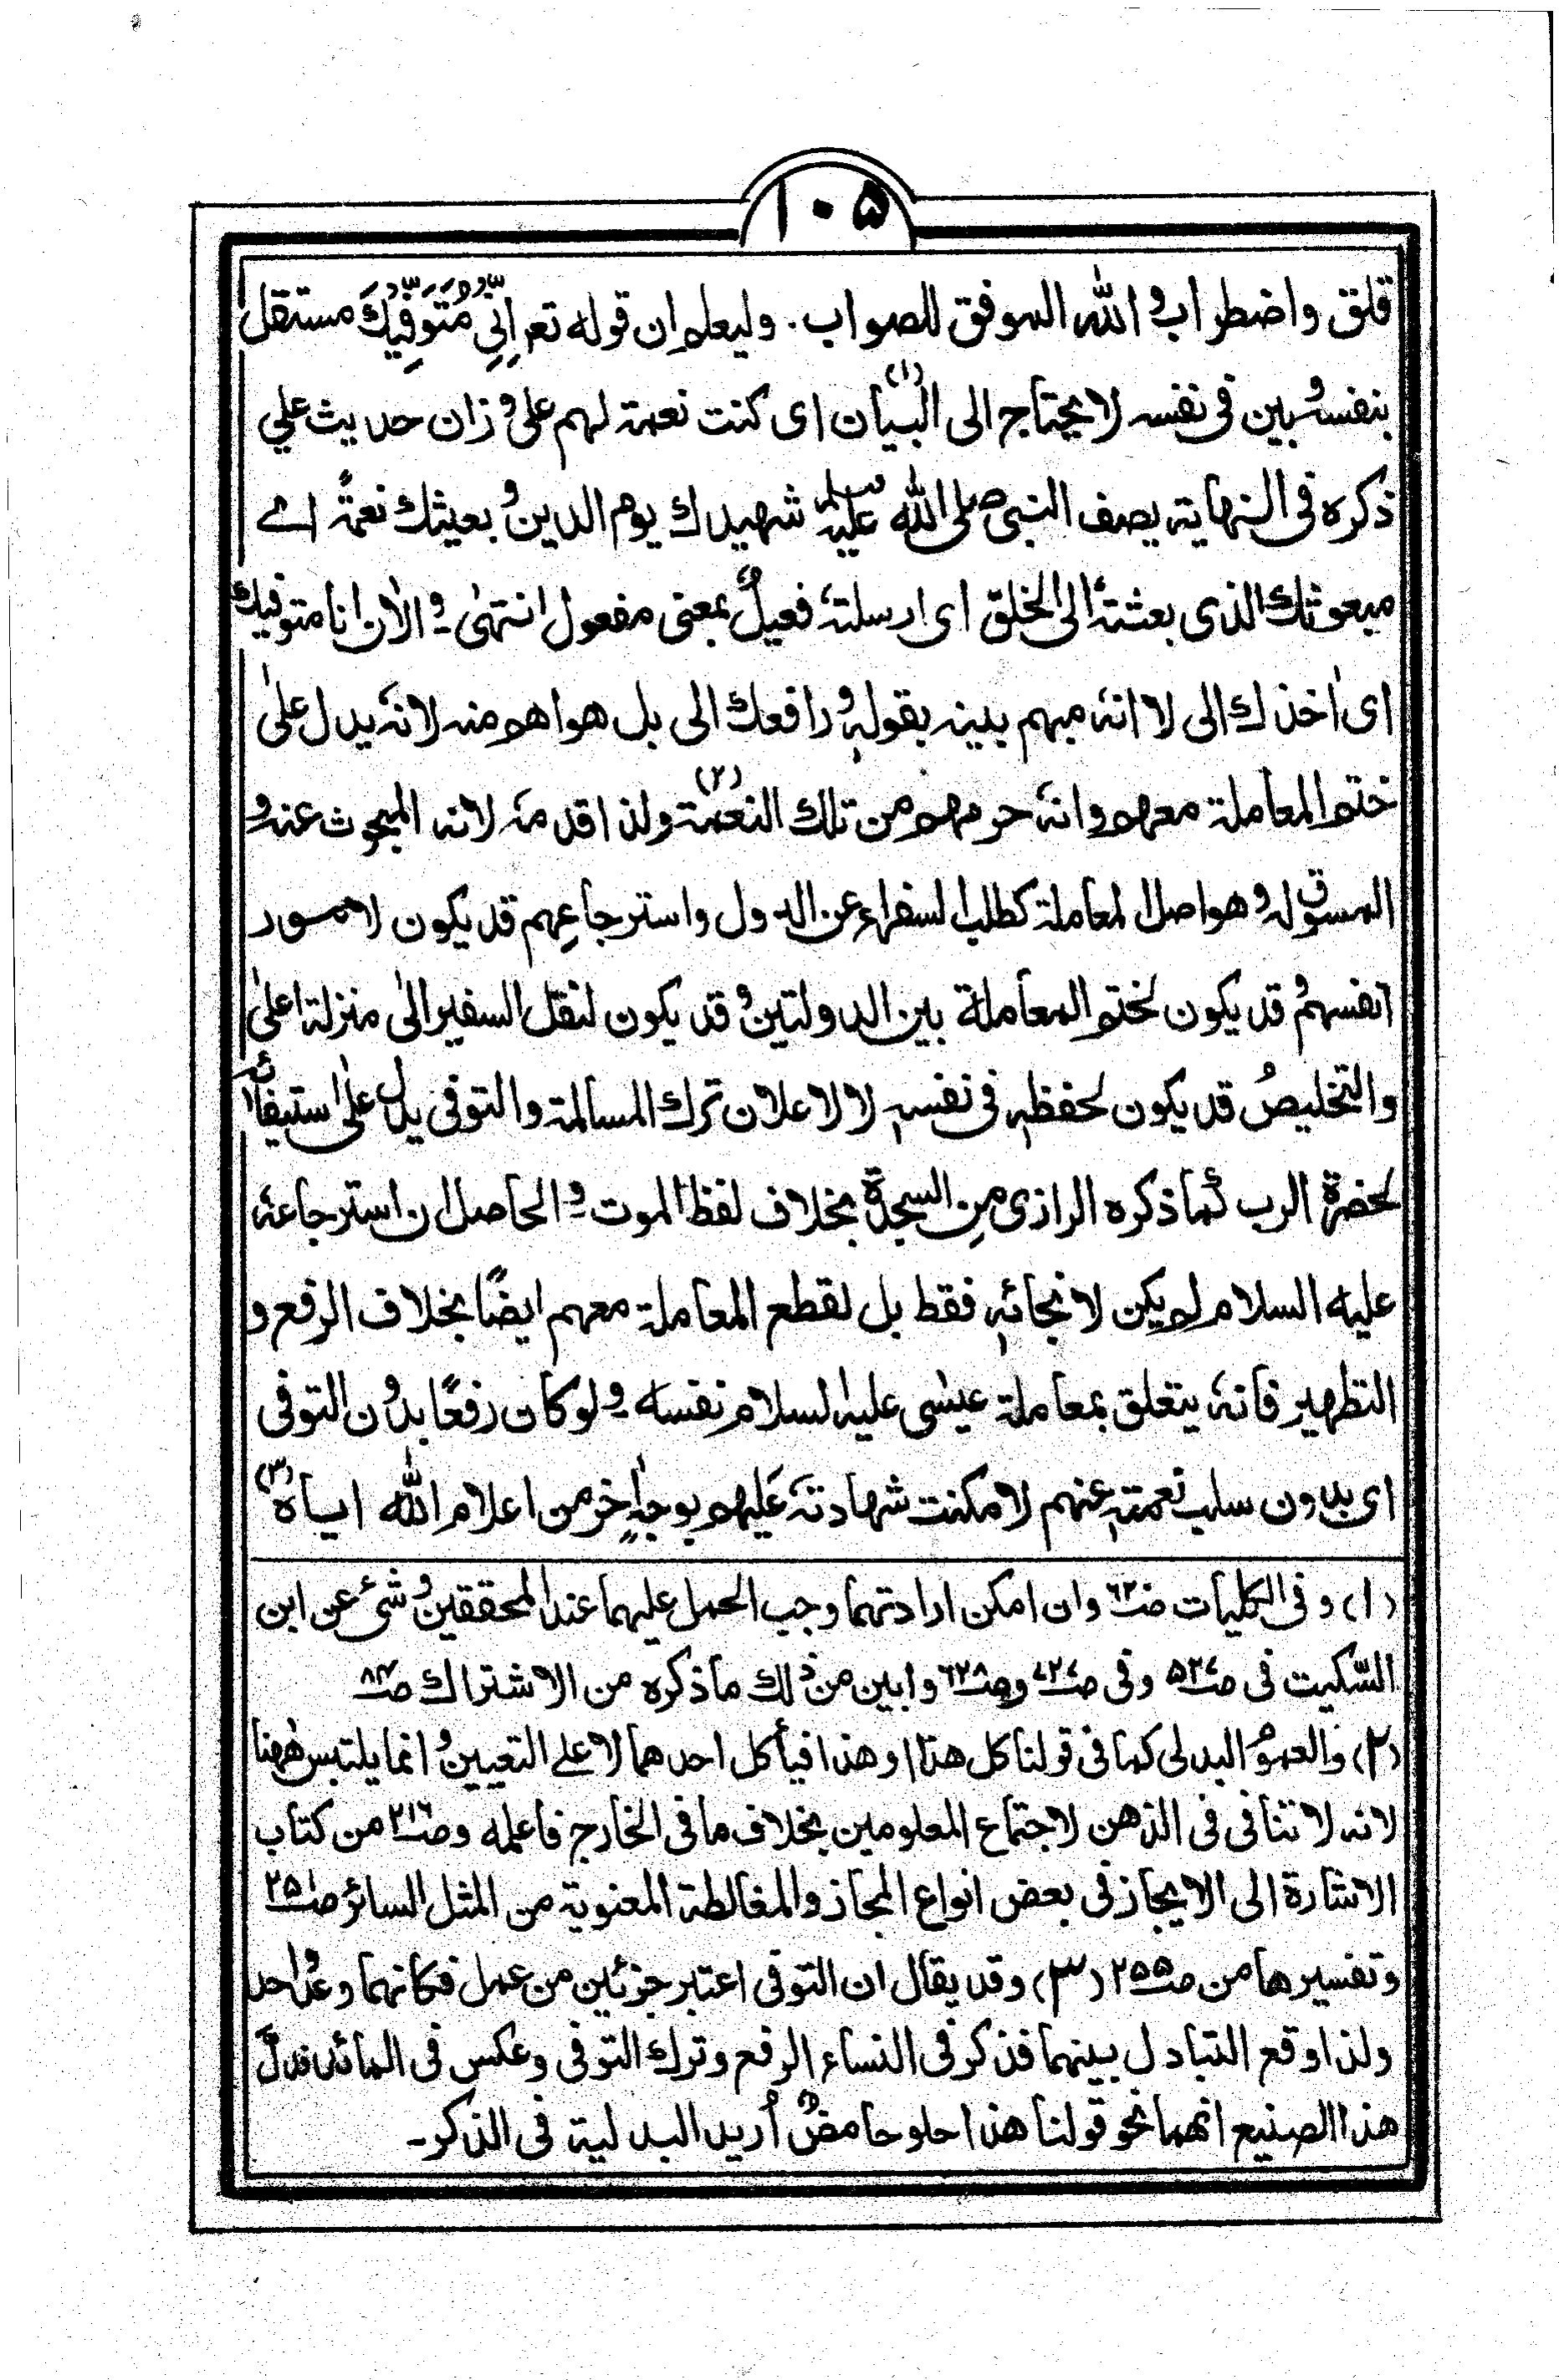 ١٠۵
قلق واضطراب والله الموفق للصواب. وليعلم ان قوله تعم إِنِّي مُتَوَفِّيكَ مستقل
بنفسه وبين في نفسه لا يحتاج الى البيان(١) اى كنت نعمة لهم على وزان حديث علي
ذكره في النهاية يصف النبي صلى الله عليه وسلم شهيدك يوم الدين و بعيثك نعمةً اے
مبعوثك الذى بعثتهٗ الى الخلق اى ارسلتهٗ فعيلٌ بمعنى مفعول انتهىٰ۔ والاٰن انا متوفيك
اى اٰخذك الى لا انهٗ مبهم بينه بقولهٖ ورافعك الى بل هو اهم منه لانهٗ يدل علىٰ
ختم المعاملة معهم وانهٗ حرمهم من تلك النعمة(٢) ولذا قدمهٗ لانه المبحوث عنه و
المسوق له وهو اصل المعاملة كطلب السفراء عن الدول واسترجاعهم قد يكون لامور
انفسهم وقد يكون لختم المعاملة بين الدولتين وقد يكون لنقل السفير الىٰ منزلة اعلىٰ
والتخليصُ قد يكون لحفظهٖ في نفسهٖ لا لاعلان ترك المسالمة والتوفى يدل علىٰ استيفائهٖ
لحضرة الرب كما ذكره الرازى من السجدة بخلاف لفظ الموت۔ والحاصل ان استرجاعهٗ
عليه السلام لم يكن لانجائهٖ فقط بل لقطع المعاملة معهم ايضًا بخلاف الرفع و
التطهير فانهٗ يتعلق بمعاملة عيسٰى عليه السلام نفسه۔ ولو كان رفعًا بدون التوفى
اى بدون سلب نعمتهٖ عنهم لامكنت شهادتهٗ عليهم بوجهٍ اٰخر من اعلام الله اياه(٣)
(١) و في الكليات صـ٦٢ وان امكن ارادتهما وجب الحمل عليهما عند المحققين و شئ عن ابن
السّكيت في صـ٥٣٤ وفى وصـ٦٢٨ وابين من ذلك ما ذكره من الاشتراك صـ
(٢) والعموم البدلى كما في قولنا كل هذا او هذا فيأكل احدهما لا علے التعيين و انما يلتبس ههنا
لانه لا تنافى فى الذهن لاجتماع المعلومين بخلاف ما فى الخارج فاعلمه وصـ٢١٦ من كتاب
الاشارة الى الايجاز في بعض انواع المجاز والمغالطة المعنوية من المثل السائر صـ
وتفسيرها من صـ٢٥٥ (٣) وقد يقال ان التوفى اعتبر جزئين من عمل فكانهما وعدٌ واحد
ولذا وقع التبادل بينهما فذكر في النساء الرفع وترك التوفى وعكس فى المائدة فدلَّ
هذا الصنيع انهما نحو قولنا هذا حلو حامضٌ أريد البدلية فى الذكر۔